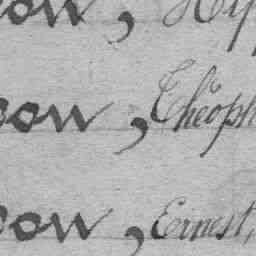 son, Hyp
son, Théoph
son, Ernest,